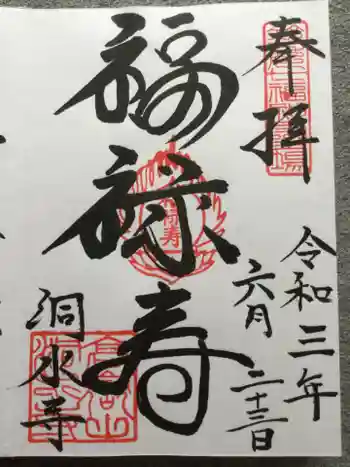 奉拝
令和三年
六月
二十三日
福禄寿
洞水寺